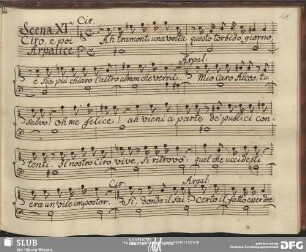 Scena XI. Cir.
Ciro, e poi
Arpalice.
Ah tramonti una volta questo torbido giorno,
Arpal.
e sia più chiaro l'astro almen che verrà. Mio caro Alceo, tu
salvo! oh me felice! ah vieni a parte de' publici con-
tenti. Il nostro Ciro vive, si ritrovò: quel che uccidesti
Cir. Arpal.
era un vile impostor. Sì, donde il sai? certo il fatto esser dee
41
SLUB
Wir führen Wissen.
DFG